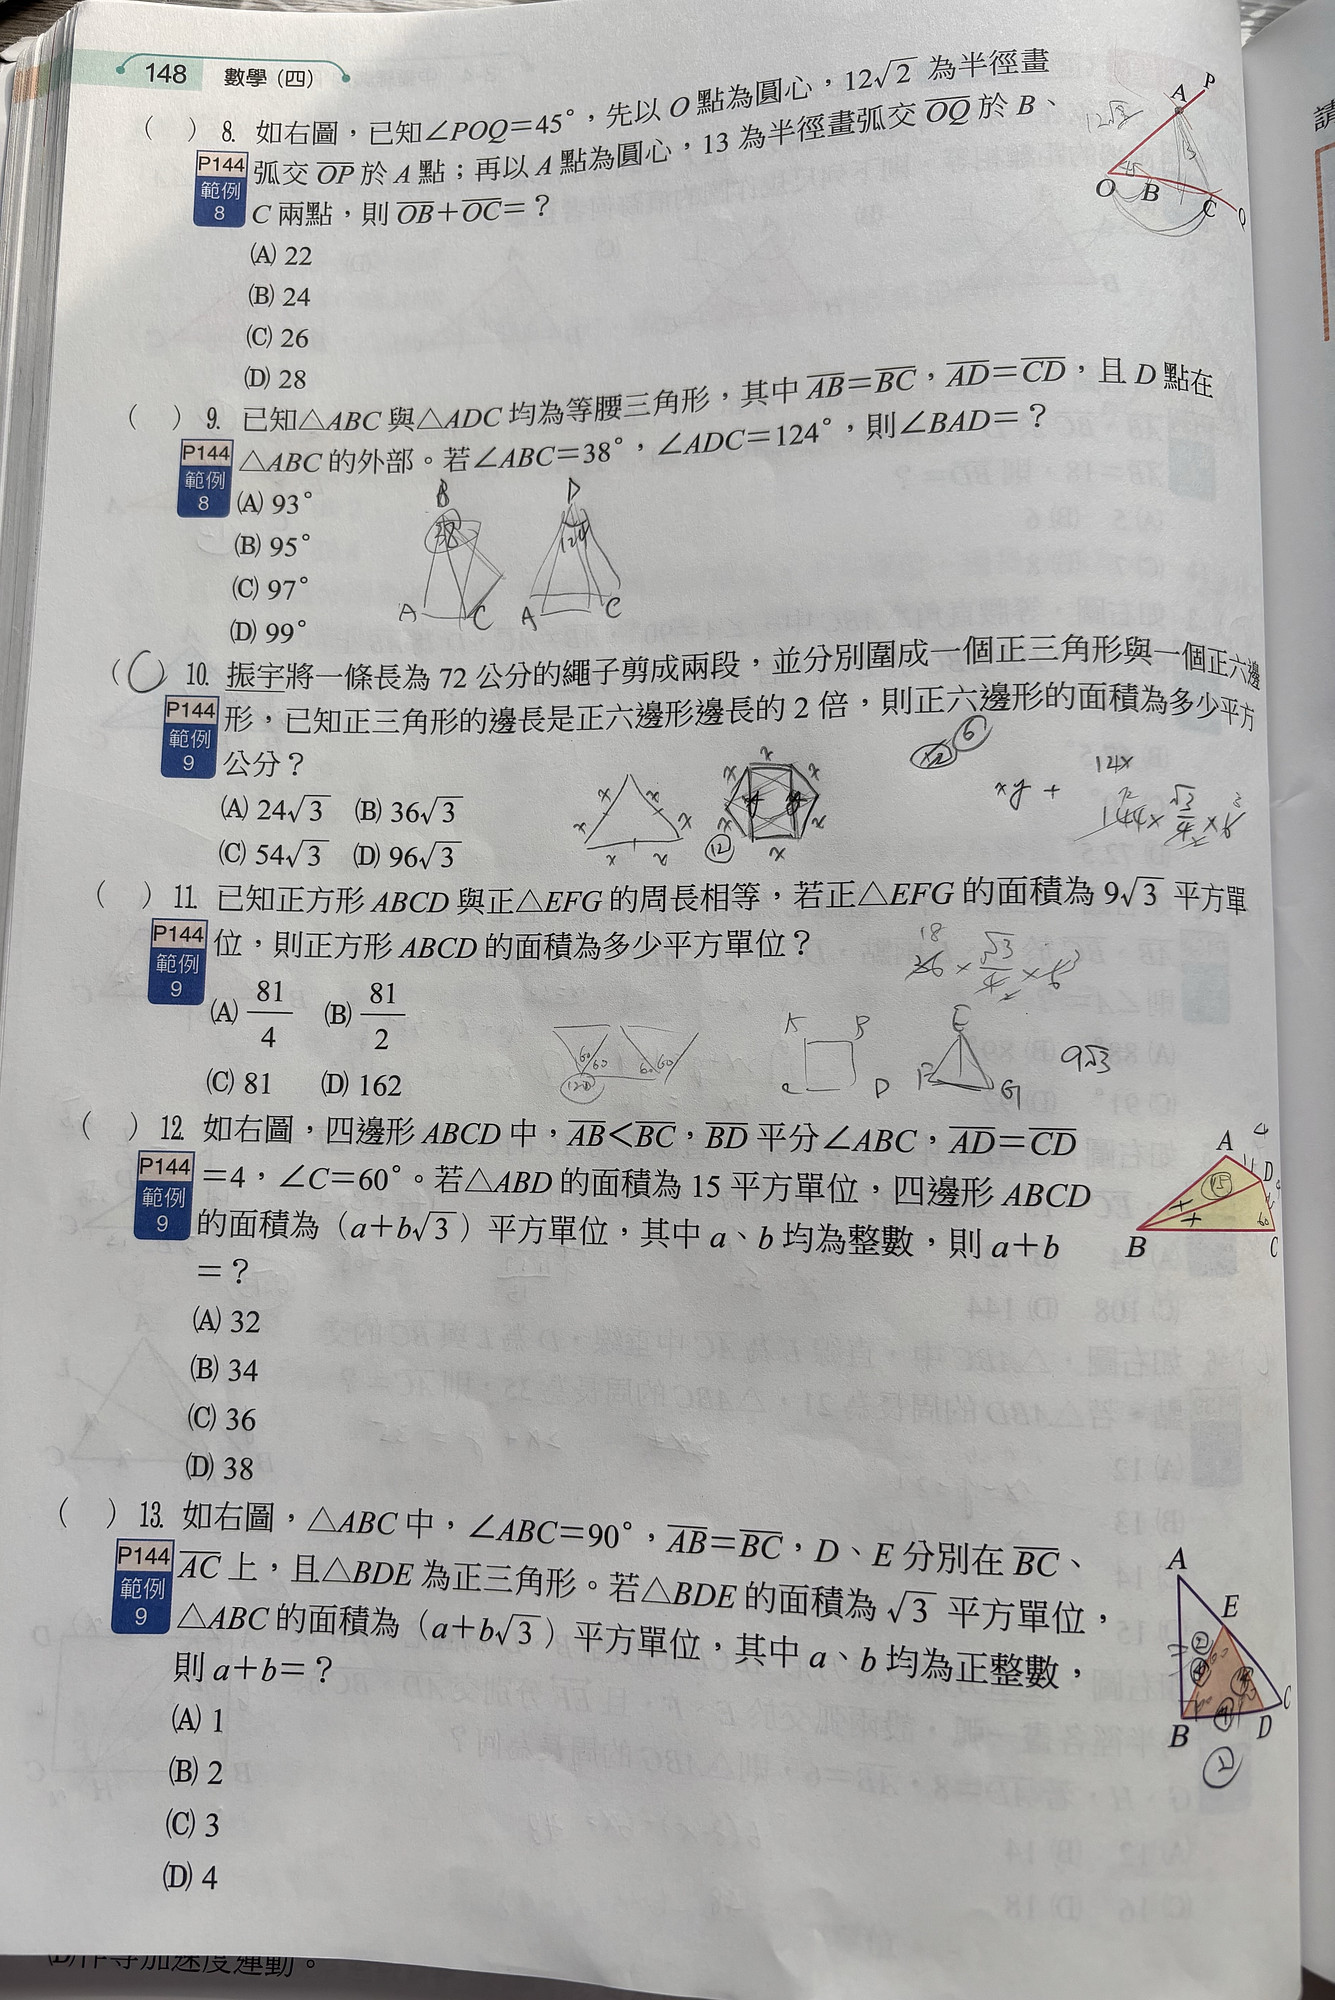 148 數學(四)
( ) 8. 如右圖，已知∠POQ=45°，先以 O 點為圓心，12√2 為半徑畫
P144 範例 8
弧交 OP 於 A 點；再以 A 點為圓心，13 為半徑畫弧交 OQ 於 B、
C 兩點，則 OB+OC=？
(A) 22
(B) 24
(C) 26
(D) 28
A P
12√2
13
45
O B C Q
( ) 9. 已知△ABC 與△ADC 均為等腰三角形，其中 AB=BC，AD=CD，且 D 點在
P144 範例 8
△ABC 的外部。若∠ABC=38°，∠ADC=124°，則∠BAD=？
(A) 93°
(B) 95°
(C) 97°
(D) 99°
B D
38 124
A C A C
(C) 10. 振宇將一條長為 72 公分的繩子剪成兩段，並分別圍成一個正三角形與一個正六邊
P144 範例 9
形，已知正三角形的邊長是正六邊形邊長的 2 倍，則正六邊形的面積為多少平方
公分？
(A) 24√3 (B) 36√3
(C) 54√3 (D) 96√3
x x x x x x
x x x x x x
12
6
12x
xy +
144× √3/4 ×6
( ) 11. 已知正方形 ABCD 與正△EFG 的周長相等，若正△EFG 的面積為 9√3 平方單
P144 範例 9
位，則正方形 ABCD 的面積為多少平方單位？
(A) 81/4 (B) 81/2
(C) 81 (D) 162
18
36× √3/4 ×6
60 60 60 60
120
B D
E F G
9√3
( ) 12. 如右圖，四邊形 ABCD 中，AB<BC，BD 平分∠ABC，AD=CD
P144 範例 9
=4，∠C=60°。若△ABD 的面積為 15 平方單位，四邊形 ABCD
的面積為（a+b√3）平方單位，其中 a、b 均為整數，則 a+b
=？
(A) 32
(B) 34
(C) 36
(D) 38
A 4
D
15
60
B C
( ) 13. 如右圖，△ABC 中，∠ABC=90°，AB=BC，D、E 分別在 BC、
P144 範例 9
AC 上，且△BDE 為正三角形。若△BDE 的面積為 √3 平方單位，
△ABC 的面積為（a+b√3）平方單位，其中 a、b 均為正整數，
則 a+b=？
(A) 1
(B) 2
(C) 3
(D) 4
A
E
B D C
2
請